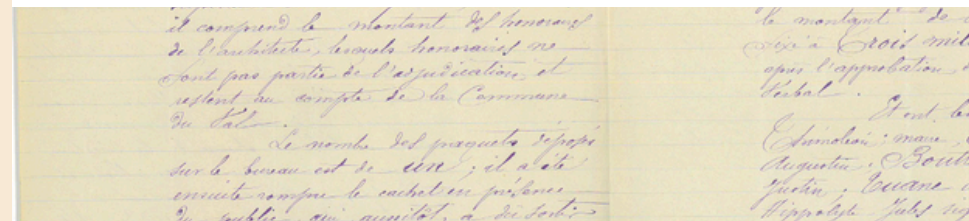 il comprend le montant des honoraires
de l'architecte, lesquels honoraires ne
font pas partie de l'adjudication, et
restent au compte de la Commune
du Val.
Le nombre des paquets déposés
sur le bureau est de un ; il a été
ensuite rompre le cachet en présence
du public, qui aussitôt, a dû sortir
le montant de
fixé à Trois mil
après l'approbation
Verbal.
Et ont
maire
Augustin
Justin
Hippolyte Jules